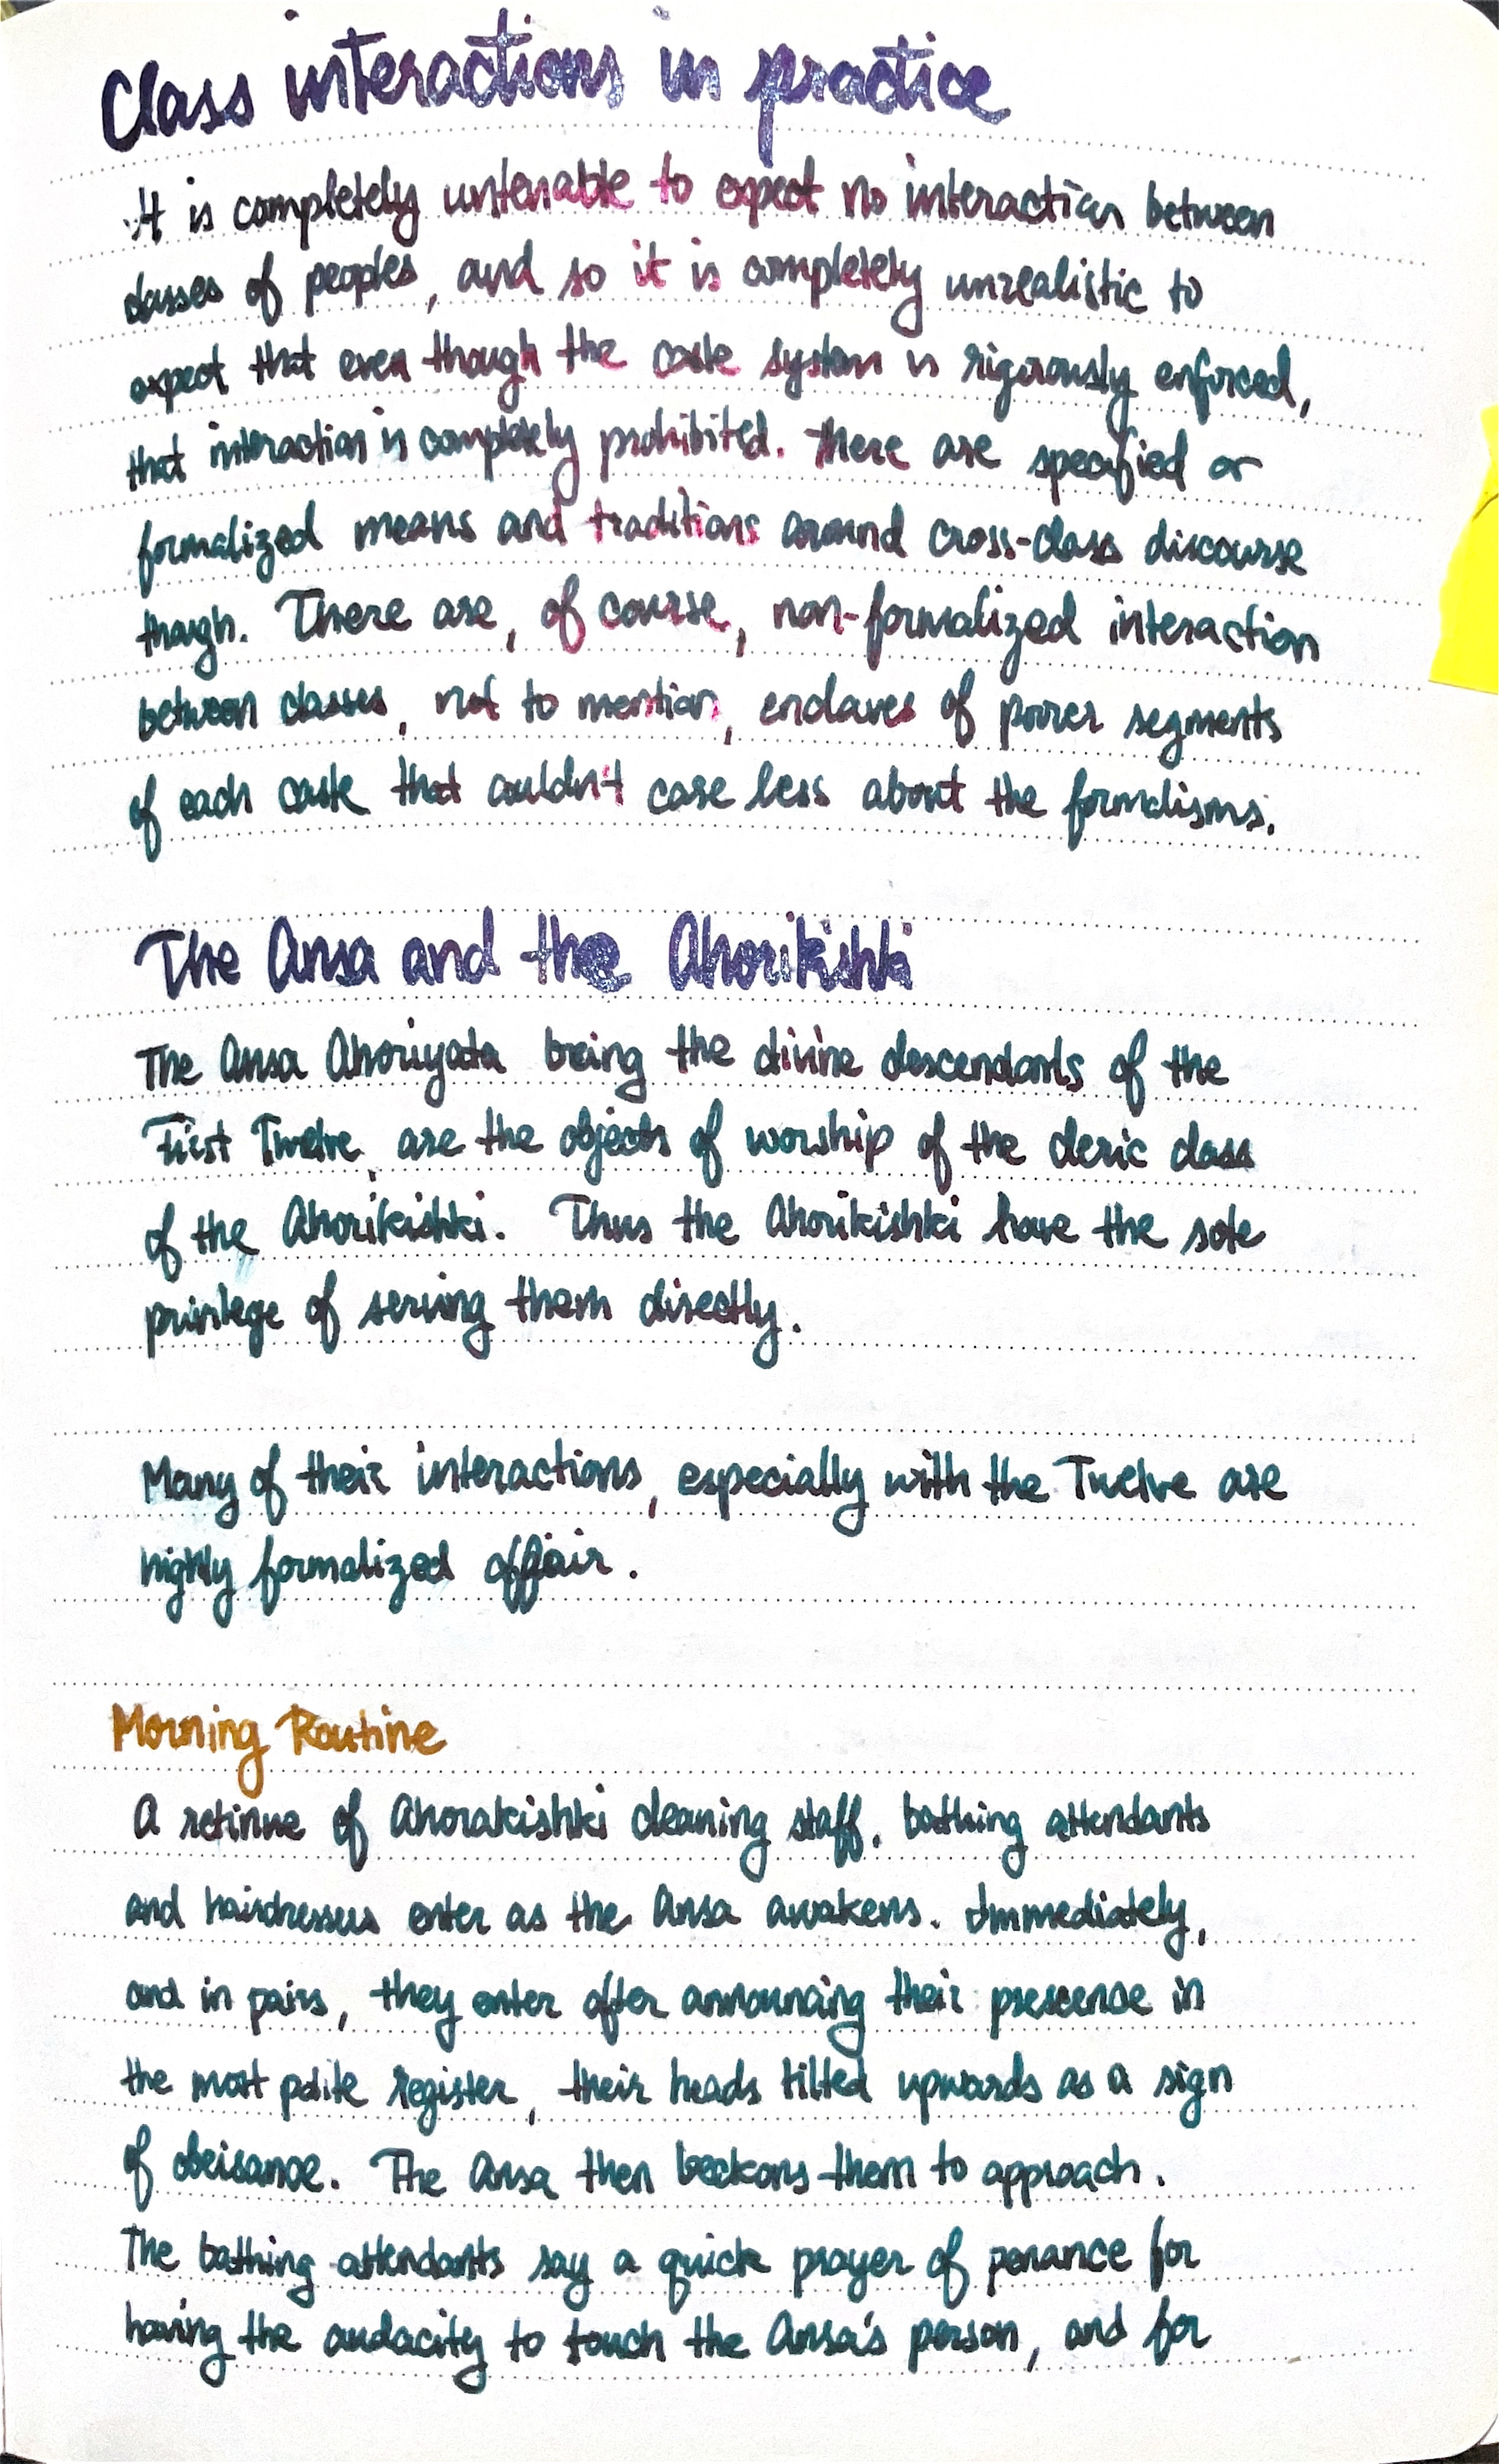 Class interactions in practice
It is completely untenable to expect no interaction between
classes of peoples, and so it is completely unrealistic to
expect that even though the caste system is rigorously enforced,
that interaction is completely prohibited. There are specified or
formalized means and traditions around cross-class discourse
though. There are, of course, non-formalized interaction
between classes, not to mention, enclaves of poorer segments
of each caste that couldn't care less about the formalisms.
The Ansa and the Ahorikishki
The Ansa Ahoriyata being the divine descendants of the
First Twelve, are the objects of worship of the cleric class
of the Ahorikishki. Thus the Ahorikishki have the sole
privilege of serving them directly.
Many of their interactions, especially with the Twelve are
highly formalized affair.
Morning Routine
A retinue of Ahorakishki cleaning staff, bathing attendants
and hairdressers enter as the Ansa awakens. Immediately,
and in pairs, they enter after announcing their prescence in
the most polite register, their heads tilted upwards as a sign
of obeisance. The Ansa then beckons them to approach.
The bathing attendants say a quick prayer of penance for
having the audacity to touch the Ansa's person, and for